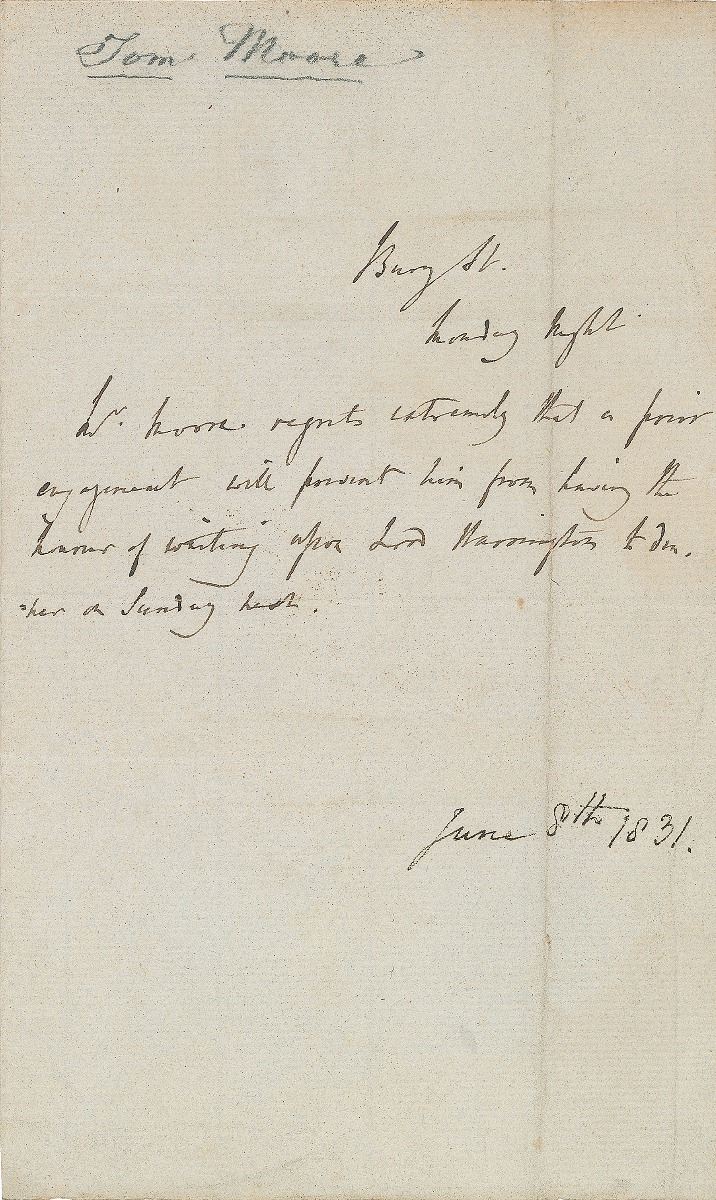 Tom Moore
Bury St.
Monday Night
Mr. Moore regrets extremely that a prior
engagement will prevent him from having the
honour of waiting upon Lord Harrington to din.
=ner on Sunday next.
June 8th 1831.